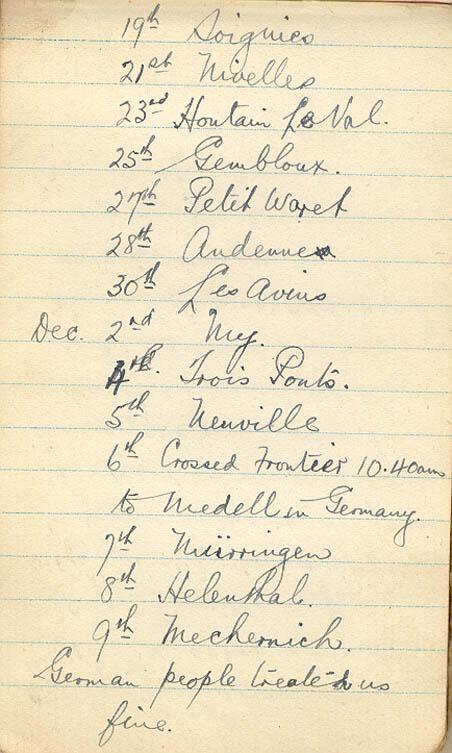 19th Soignies
21st Nivelles
23rd Houtain Le Val.
25th Gembloux.
27th Petit Waret
28th Andenne
30th Les Avins
Dec. 2nd My.
4th. Trois Ponts.
5th Neuville
6th Crossed Frontier 10.40am
to Medell in Germany.
7th Mürringen
8th Helenthal.
9th Mechernich.
German people treated us
fine.